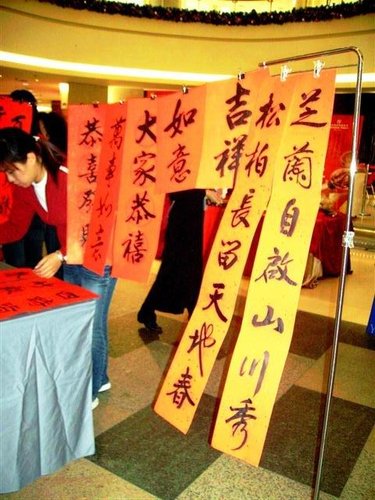 芝蘭自啟山川秀
松柏長留天地春
吉祥
如意
大家恭禧
萬事如意
恭喜發財